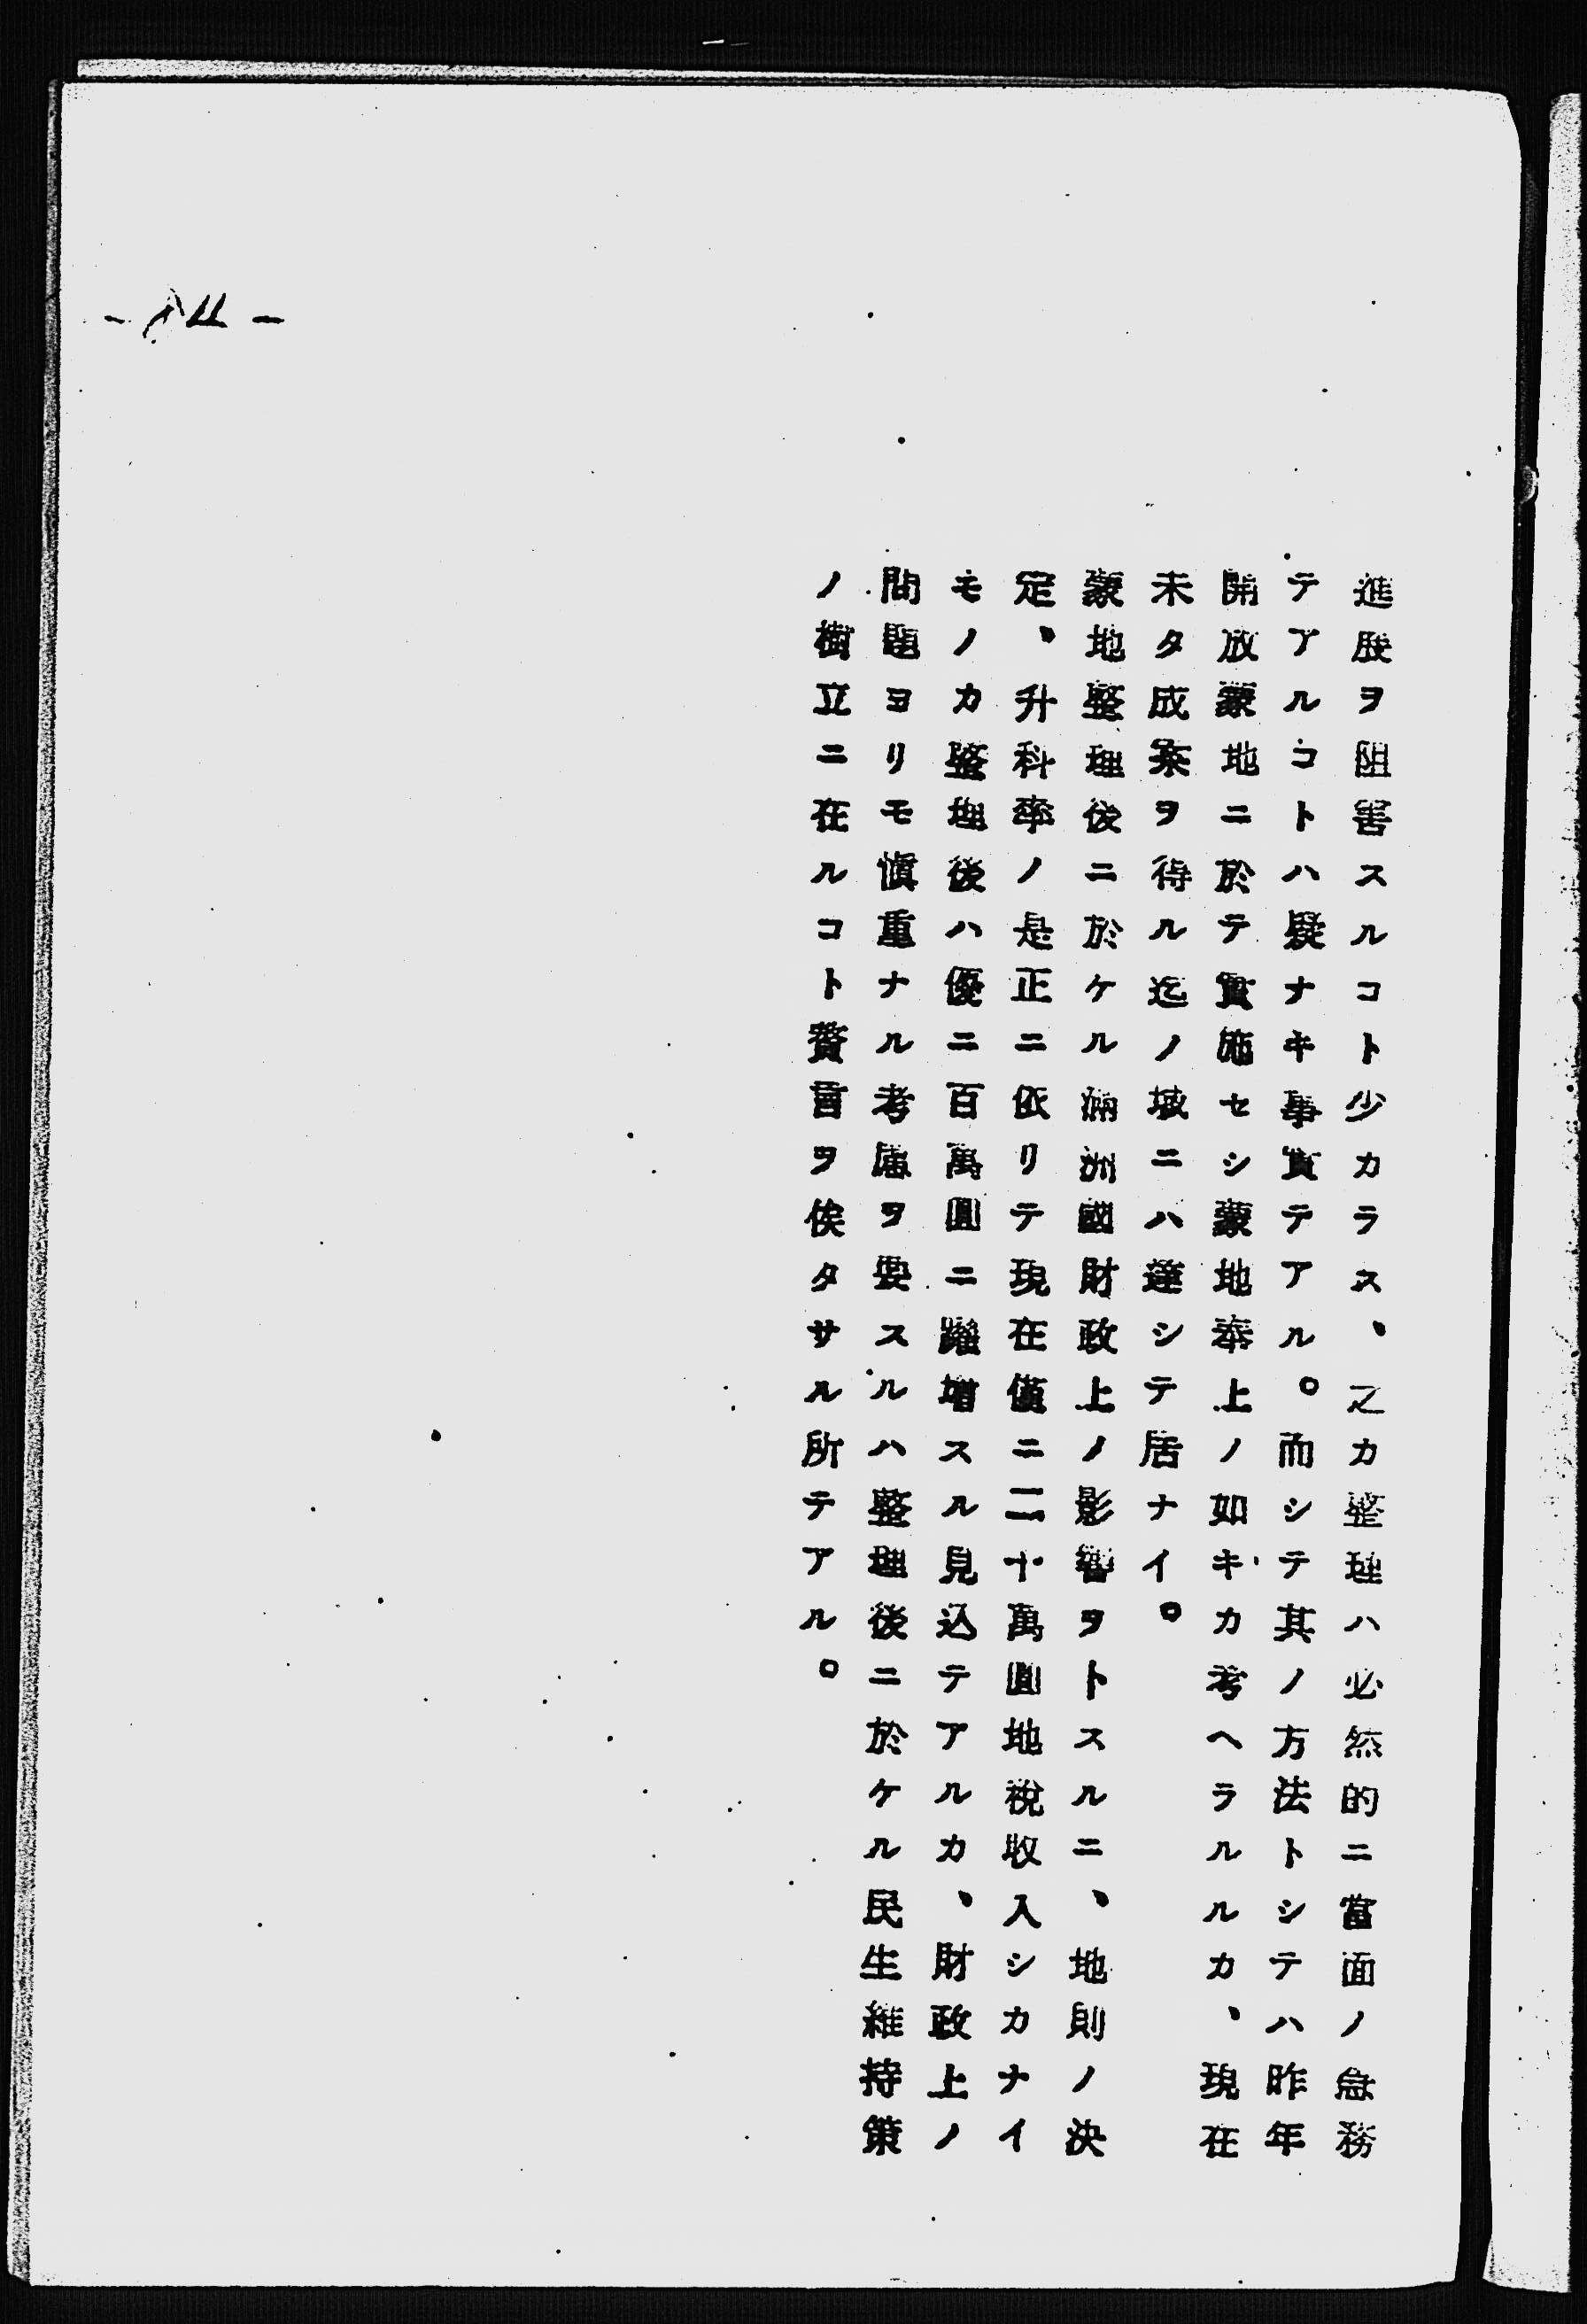 進展ヲ阻害スルコト少カラス、之カ整理ハ必然的ニ當面ノ急務
テアルコトハ疑ナキ事實テアル。而シテ其ノ方法トシテハ昨年
開放蒙地ニ於テ實施セシ蒙地奉上ノ如キカ考ヘラルルカ、現在
未タ成案ヲ得ル迄ノ域ニハ達シテ居ナイ。
蒙地整理後ニ於ケル滿洲國財政上ノ影響ヲトスルニ、地則ノ決
定、升科率ノ是正ニ依リテ現在僅ニ二十萬圓地稅收入シカナイ
モノカ整理後ハ優ニ百萬圓ニ躍增スル見込テアルカ、財政上ノ
問題ヨリモ愼重ナル考慮ヲ要スルハ整理後ニ於ケル民生維持策
ノ樹立ニ在ルコト贅言ヲ俟タサル所テアル。